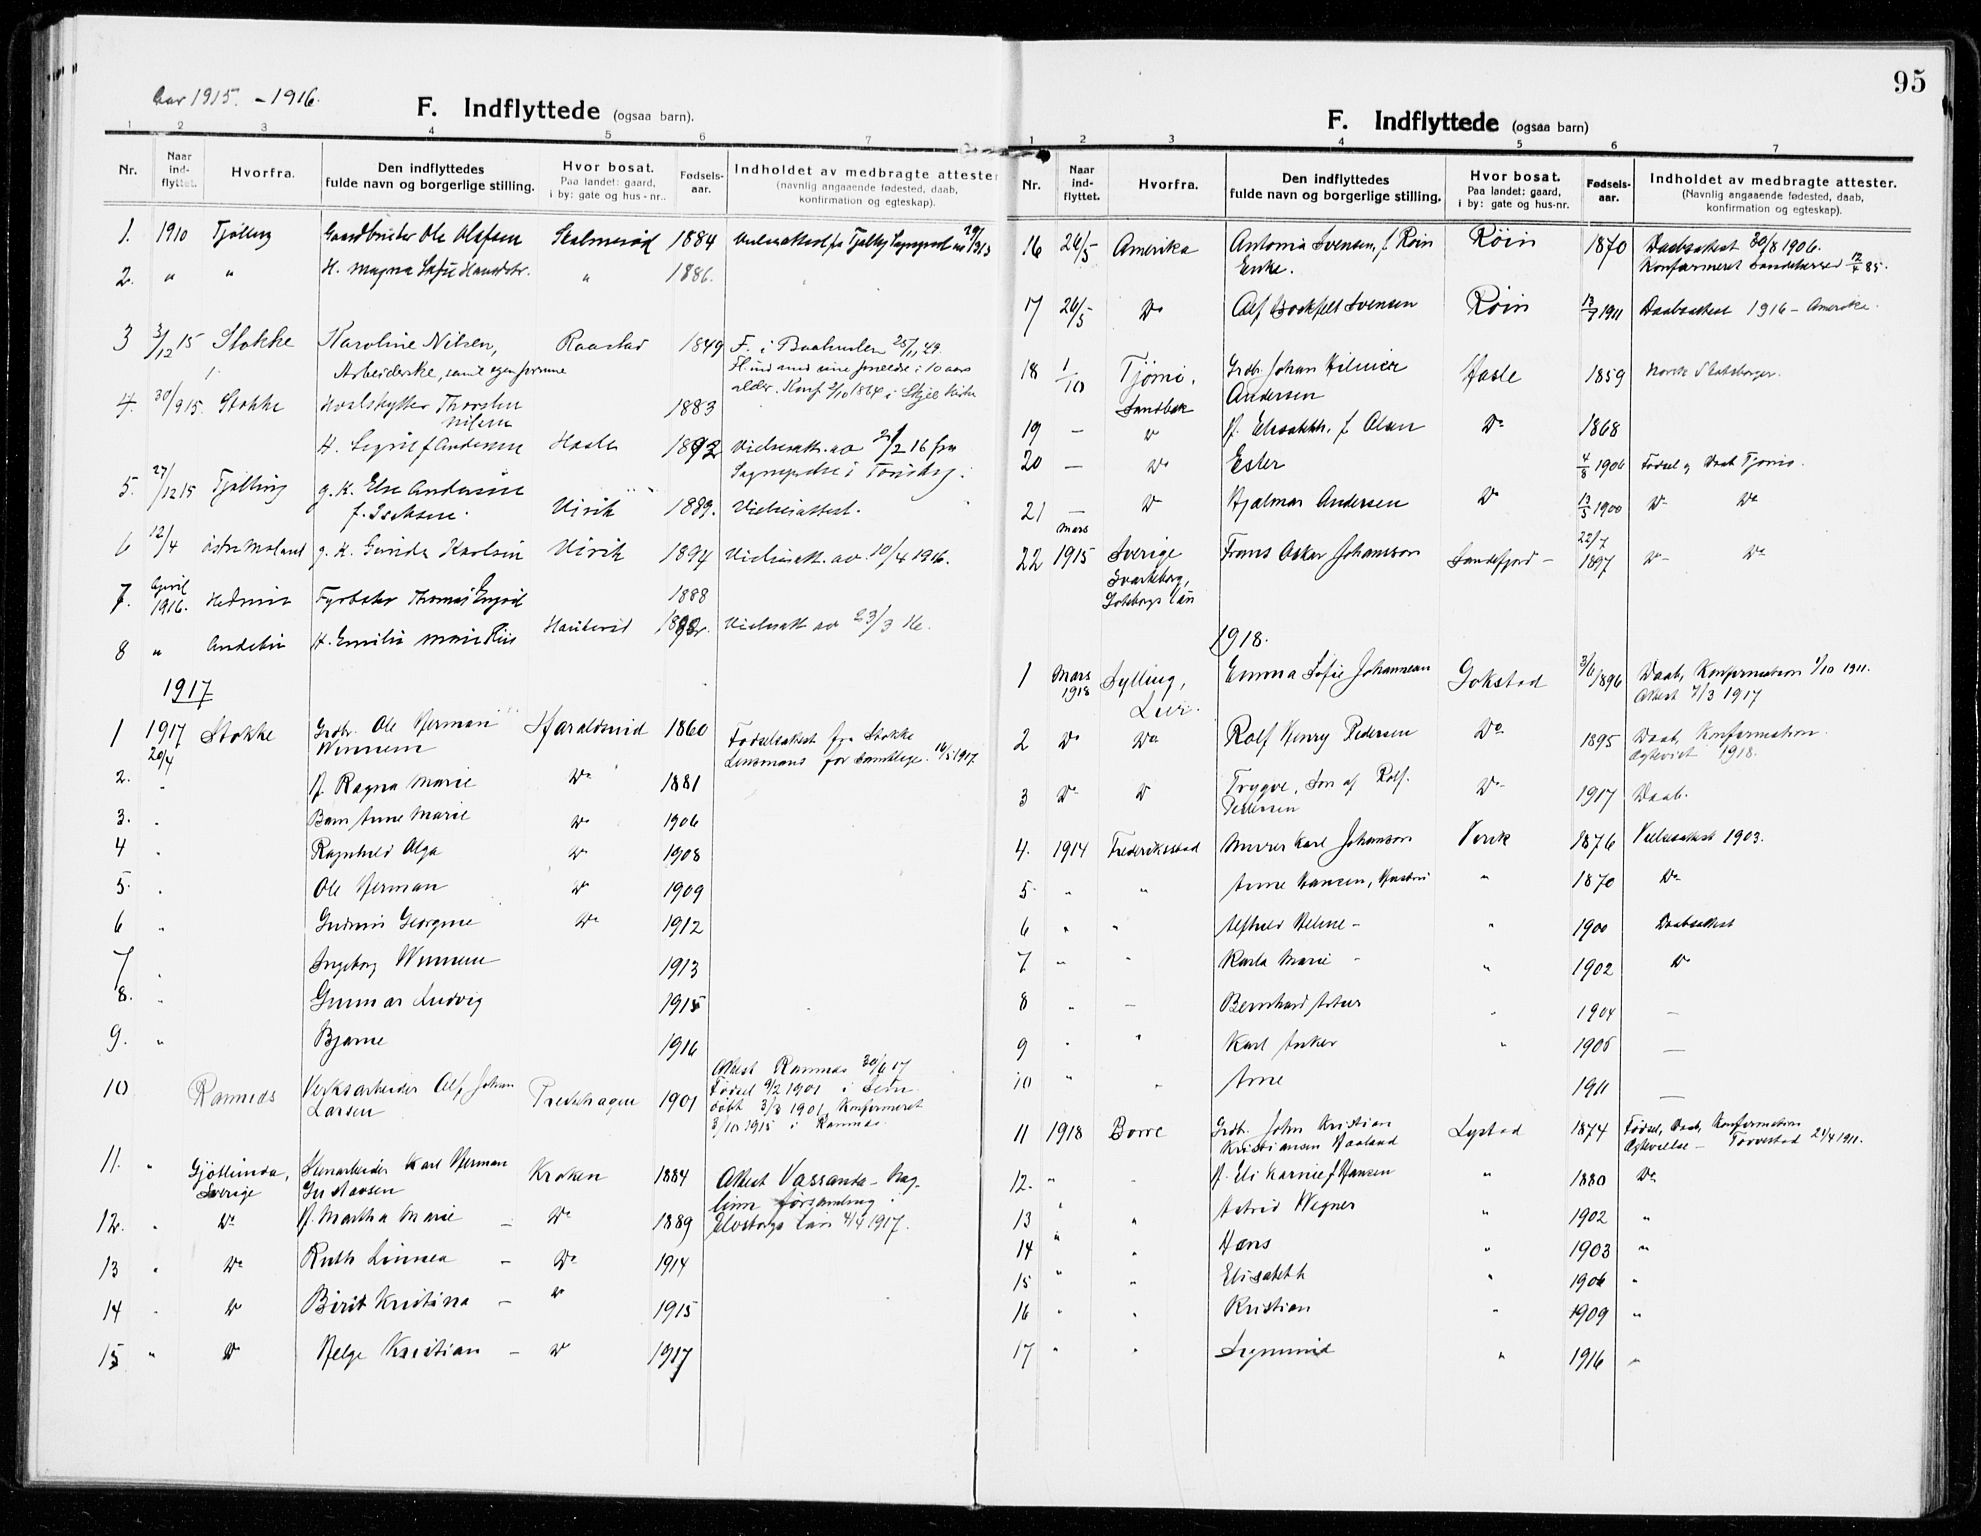 Aar 1915. - 1916.
F. Indflyttede (ogsaa barn).
1 2 3 4 5 6 7
Nr. Naar ind-flyttet. Hvorfra. Den indflyttedes fulde navn og borgerlige stilling. Hvor bosat. Paa landet: gaard, i by: gate og hus-nr.. Fødsels-aar. Indholdet av medbragte attester (navnlig angaaende fødested, daab, konfirmation og egteskap).
1. 1910 Tjølling Gaardbruker Ole Olafsen 1884
2. " " H. Magna Sofie " 1886.
3 3/12 15 Stokke Karoline Nilsen, Raastad 1849 F. i Baahuslen 25/11 49.
Arbeiderske,
alder. Konf. 2/10 1864 i
4. 30/9 15. Stokke Hvalskytter Thorsten Nilsen 1883
H. f. Andersen Hasle 1892 Vielsesatt. av 2/2 16 fra
5. 27/12 15 Tjølling g. K. Else Andersen Virik 1889. Vielsesattest.
f. Isaksen.
6 12/4 Østre Moland g. K. Karlsen Virik 1894 Vielsesatt. av 10/4 1916.
7. April 1916. Fyrbøter Thomas 1888
8 " Andebu H. Emilie Marie 1892. Vielsesatt av 23/3 16.
1917
1 1917 Stokke Grdbr. Ole Herman Haraldsrud 1860 Fødselsattest fra Stokke
20/4 Lensmand for samtlige. 1917.
2. . H. Ragna Marie Do 1881
3. . Barn Anne Marie Do 1906
4 . Ragnhild Olga Do 1908
5. . Ole Herman Do 1909
6 . Gudrun Georgine Do 1912
7 . Ingeborg 1913
8. . Gunnar Ludvig 1915
9. " Bjarne 1916
10 Ramnes Verksarbeider Alf Johan Larsen 1901 Attest Ramnes 30/6 17
Fødsel 9/2 1901 i Sem.
døbt 3/3 1901, Konfirmeret
3/10 1915 i Ramnes.
11. " Gjøllunda, Sverige Stenarbeider Karl Herman Gustavsen Kroken 1884 Attest
Elvsborgs Län 4/4 1917.
12. . Do H. Martha Marie — Do 1889
13 . Do Ruth Linnea — Do 1914
14 . Do Birit Kristina — Do 1915
15 " Do Helge Kristian — Do 1917
95
F. Indflyttede (ogsaa barn)
1 2 3 4 5 6 7
Nr. Naar ind-flyttet. Hvorfra. Den indflyttedes fulde navn og borgerlige stilling. Hvor bosat. Paa landet: gaard, i by: gate og hus-nr. Fødsels-aar. Indholdet av medbragte attester. (Navnlig angaaende fødested, daab, konfirmation og egteskap).
16 26/5 Amerika Antonia Svensen, f. Røin Røin 1870 Daabsattest 30/8 1906.
Enke. Konfirmeret Sandeherred 12/4 85.
17 26/5 Do Alf Svensen Røin 13/7 1911 Daabsattest 1916 - Amerika.
18 1/10 Tjømø, Grdbr. Johan Hilmer Andersen Hasle 1859 Norsk Statsborger.
19 — Do H. Elisabeth f. Olsen Do 1868
20 — Do Ester 4/8 1906 Fødsel og Daab Tjømø.
21 — Do Hjalmar Andersen Do 13/5 1900 Do Do
22 Mars 1915 Sverige Frans Oskar Johansson Sandefjord — 22/7 1897 Do Do
Svarteborg, Göteborgs län
1918.
1 Mars 1918 Sylling, Lier. Emma Sofie Johannesen Gokstad 3/6 1896 Daab, Konfirmation 1/10 1911.
Attest 7/3 1917
2 Do Do Rolf Henry Pedersen Do 1895 Daab, Konfirmation.
1918.
3 Do Do Trygve, Søn af Rolf Pedersen Do 1917 Daab.
4. 1914 Frederiksstad Murer Karl Johanson Virik 1876 Vielsesattest 1903.
5. " " Anne Hansen, Hustru " 1870 Do
6 " " Alfhild Helene — " 1900 Daabsattest
7 " " Karla Marie — " 1902 Do
8 " — Bernhard Artur " 1904 —
9 " " Karl Anker " 1906 —
10 " " Arne 1911 —
11 1918 Borre Grdbr. John Kristian Kristiansen Haaland Lystad 1874 Fødsel, Daab, Konfirmation
Ægtevielse — Torvestad 21/4 1911.
12. " " H. Eli Karine f. Hansen " 1880 Do
13 " " Astrid Wegner " 1902 "
14 " " Hans " 1903 "
15 " " Elisabeth " 1906 "
16 " " Kristian " 1909 "
17 " " Sigmund " 1916 "